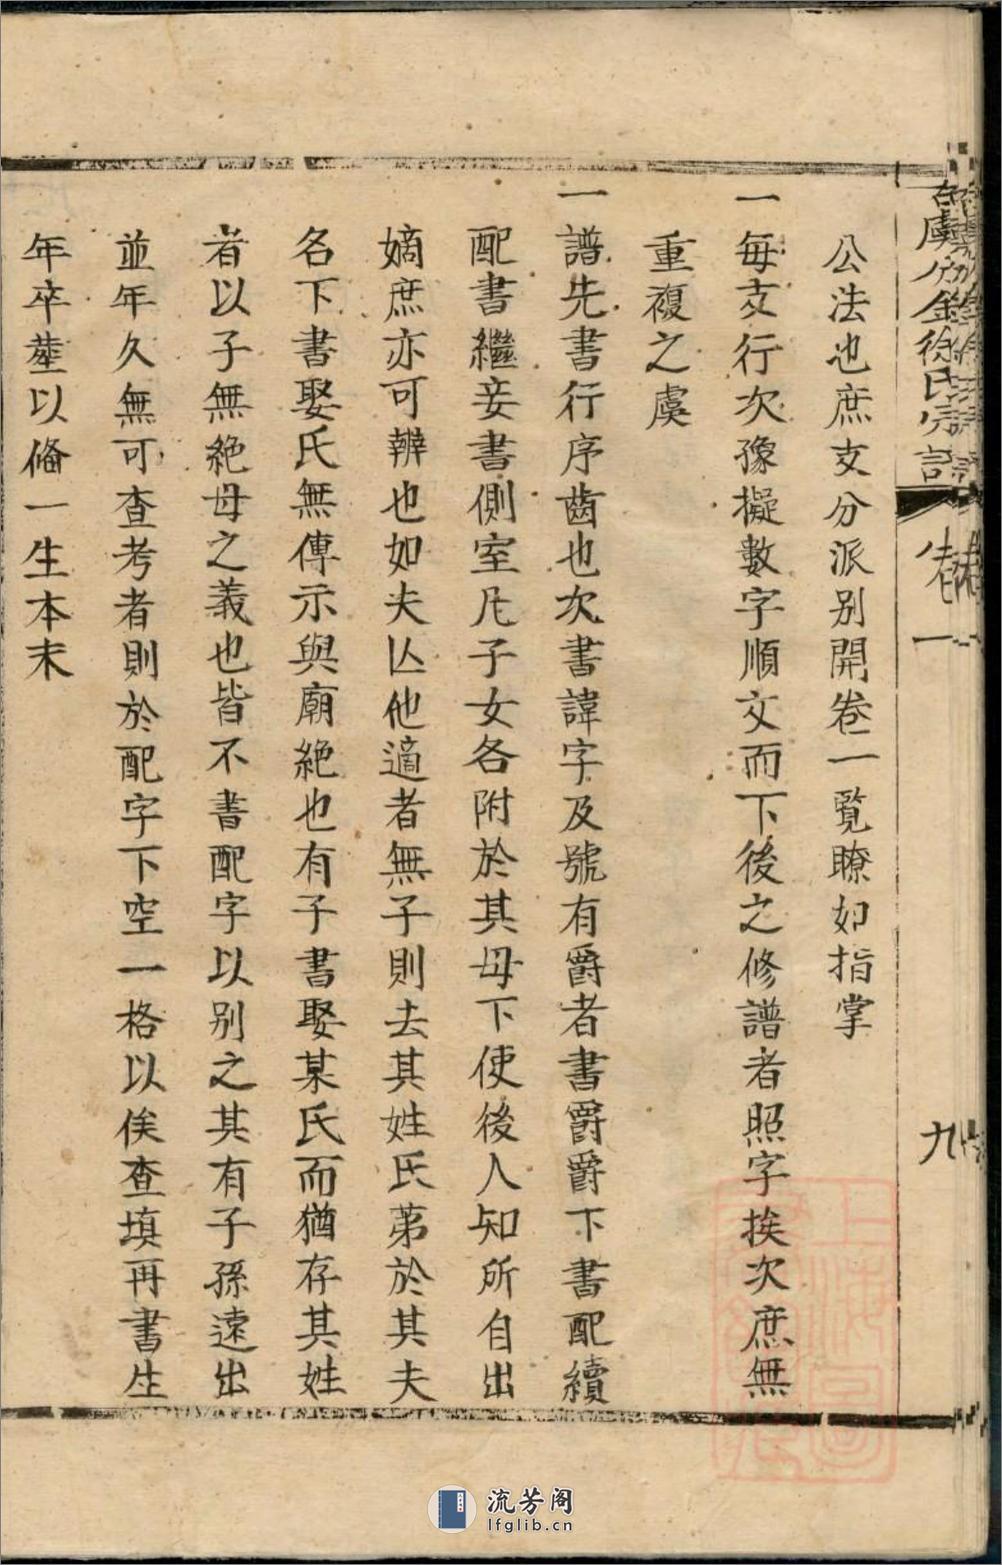 古虞分金徐氏宗譜
卷一
九
公法也庶支分派别開卷一覧瞭如指掌
一每支行次豫擬數字順文而下後之修譜者照字挨次庶無
重複之虞
一譜先書行序齒也次書諱字及號有爵者書爵爵下書配續
配書繼妾書側室凡子女各附於其母下使後人知所自出
嫡庶亦可辨也如夫亾他適者無子則去其姓氏苐於其夫
名下書娶氏無傳示與廟絶也有子書娶某氏而猶存其姓
者以子無絶母之義也皆不書配字以别之其有子孫遠出
並年久無可查考者則於配字下空一格以俟查填再書生
年卒塟以俻一生本末
流芳阁
lfglib.cn